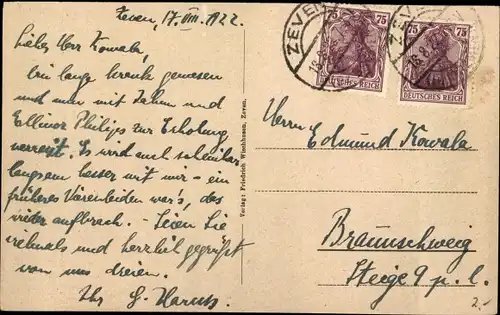 Zeven, 17. VIII. 1922.
Lieber Herr Kowala,
bin lange krank gewesen
und nun mit Jahns und
Ellinor Philips zur Erholung
verreist. Es wird auch scheinbar
langsam besser mit mir - ein
früheres Nierenleiden war's, das
wieder aufbrach. - Seien Sie
vielmals und herzlich gegrüßt
von uns dreien.
Ihr
Verlag: Friedrich Wischhusen, Zeven.
ZEVEN
18.8.
75 75
DEUTSCHES REICH
75 75
DEUTSCHES REICH
Herrn Edmund Kowala
Braunschweig
Steige 9 p. l.
2.-